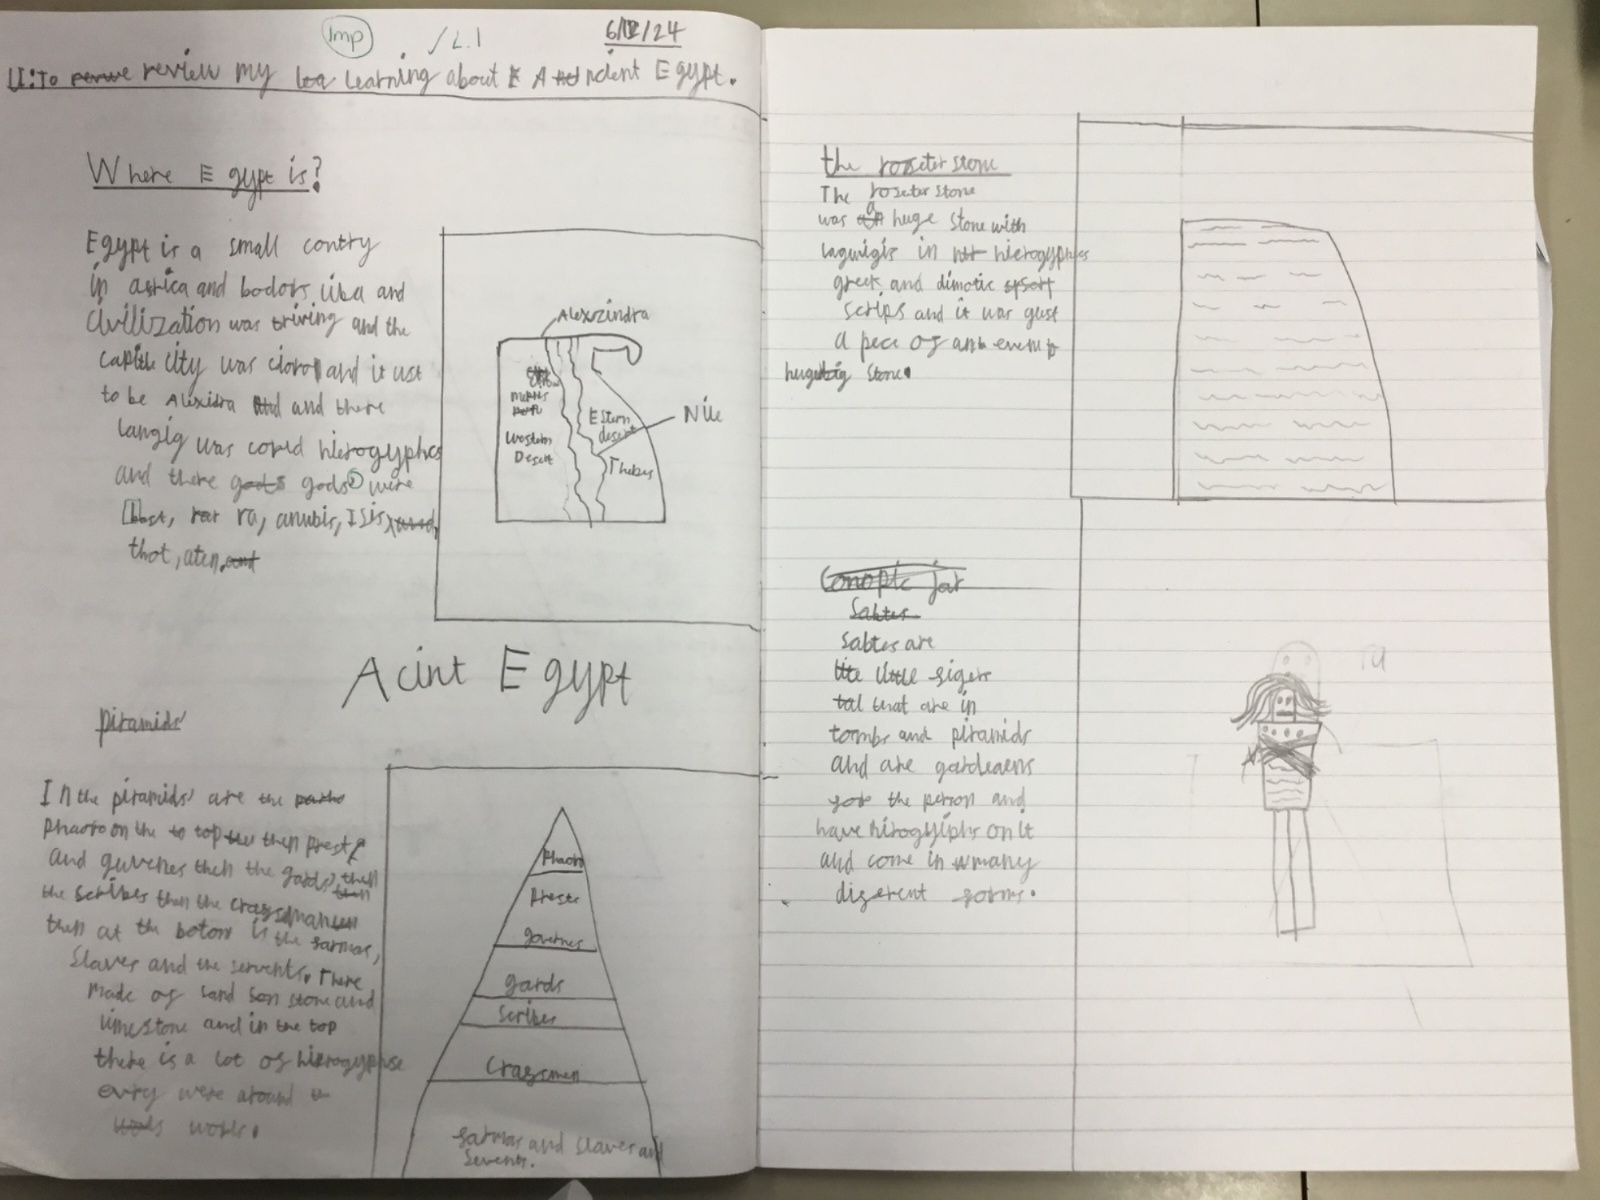 Imp
L.I
6/12/24
LI: To review my learning about A ncient Egypt.
Where Egypt is?
Egypt is a small contry
in africa and bodors liba and
civilization was triving and the
capitle city was cioro and it ust
to be Alexidra and there
langig was coreld hieroglyphics
and there gods were
bast, ra, anubis, Isis,
thot, aten.
Alexzindra
memfis
Western
Desert
Estern
desert
Nile
Thebes
Acint Egypt
Piramids'
In the piramids' are the
Pharoron the to top then prest
and guvenes then the gards', then
the scribes then the crafsman
then at the botom is the farmas,
Slaves and the servents. There
made of sand son stone and
limestone and in the top
there is a lot of hierogyphse
evry were around
wolls.
Pharo
Prests
governes
gards
Scribes
Crafsmen
farmas and slaves and
sevents.
the roseter stone
The roseter stone
was a huge stone with
laguigis in hierogyphics
greek and dimotic
scrips and it was gust
a pece of an even
huge stone.
Conoptc jar
Sabtes
Sabtes are
little figers
that are in
tombs and piramids
and are gardeaens
for the person and
have hirogyliphs on it
and come in many
diferent forms.